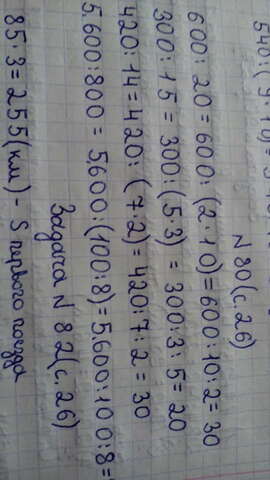 540:(9·
N 80(с.26)
600:20=600:(2·10)=600:10:2=30
300:15=300:(5·3)=300:3:5=20
420:14=420:(7·2)=420:7:2=30
5.600:800=5.600:(100:8)=5.600:100:8=
Задача N 82(с.26)
85·3=255(км)-S первого поезда